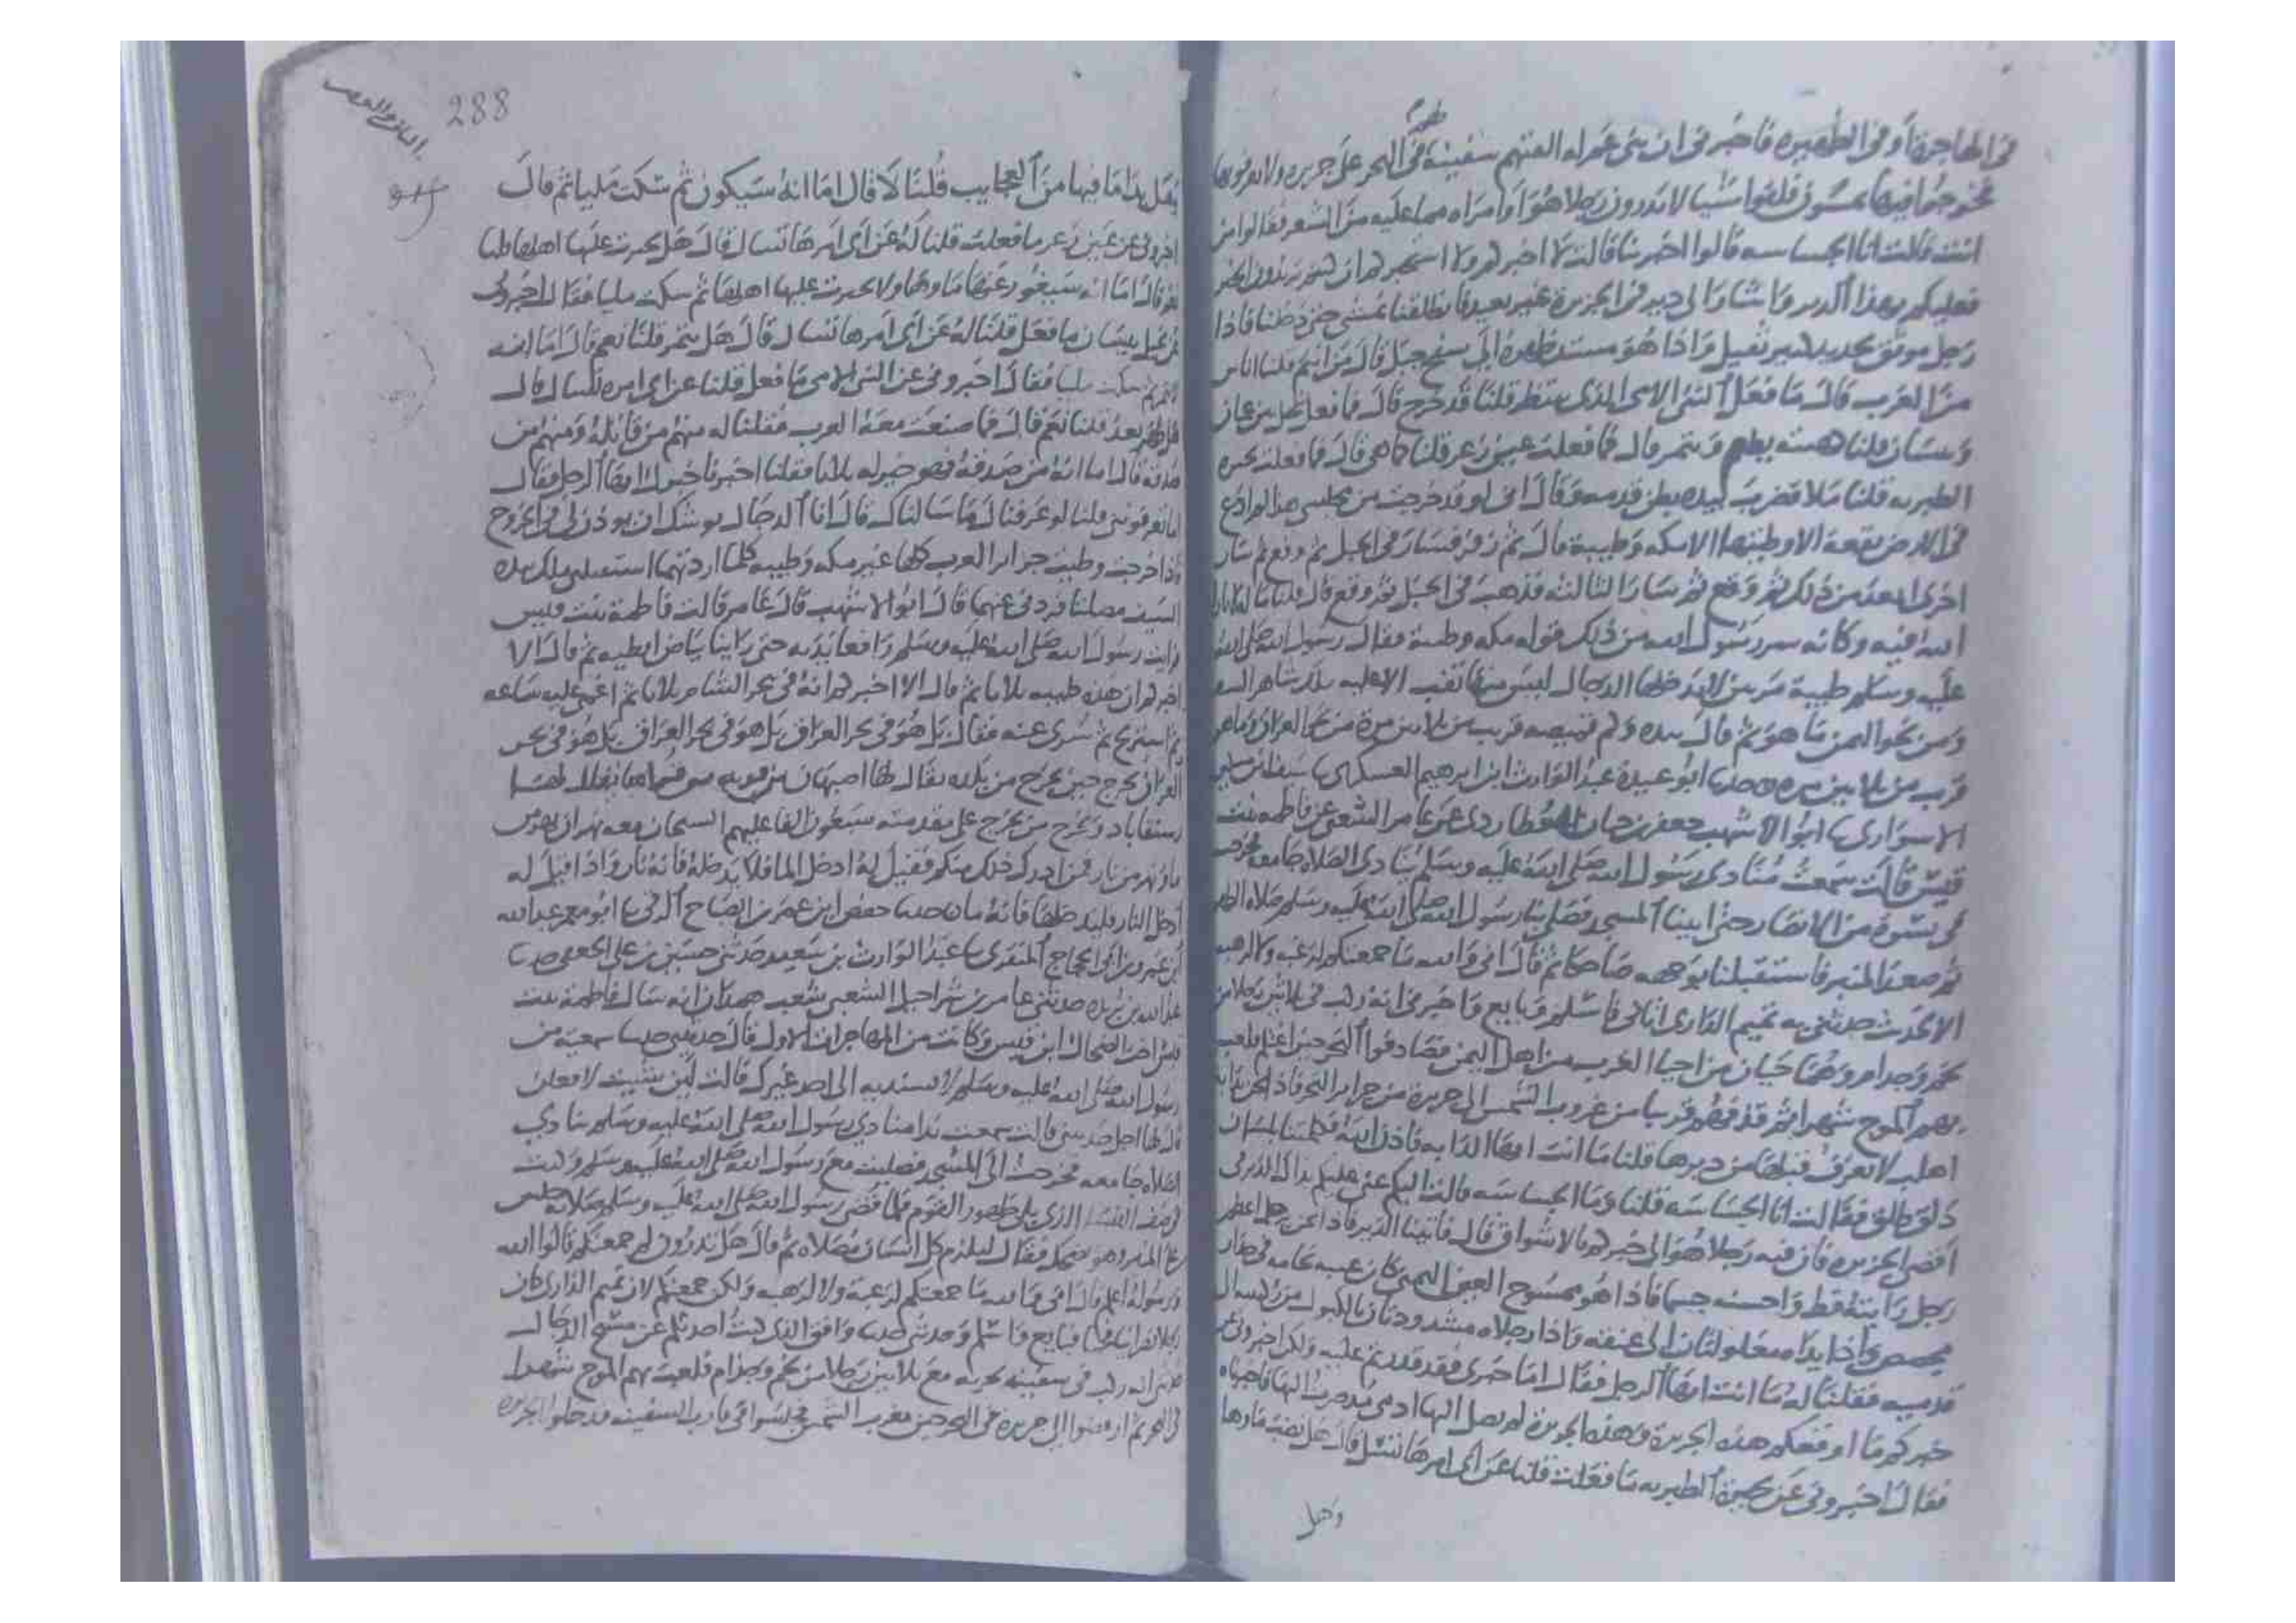 في الهاجرة أو في الظهيرة فأخبرني ان بني عم له القتهم سفينة في البحر على جزيرة ولا يعرفونها
فخرجوا فيها يمشون فلقوا شيا لا يدرون رجلا هو أو امراه مما عليه من الشعر فقالوا من
انت قالت انا الجساسه قالوا اخبرينا قالت لا اخبركم ولا استخبركم ان كنتم تريدون الخبر
فعليكم بهذا الدير واشارت الى دير في الجزيرة غير بعيد فانطلقنا نمشي حتى دخلنا فاذا
رجل موثق بحديد كثير ثقيل واذا هو مستند ظهره إلى سفح جبل قال من انتم قلنا اناس
من العرب قال ما فعل النبي الامي الذي ينتظر قلنا قد خرج قال فما فعل نخل بين عمان
وبيسان قلنا كهيئته يطعم ويثمر قال فما فعلت عين زغر قلنا كما هي قال فما فعلت بحيرة
الطبريه قلنا ملا فضرب بيده بطن قدمه وقال اني لو قد خرجت من مجلسي هذا لم ادع
في الارض بقعة الا وطيتها الا مكه وطيبة قال ثم زفر فسار في الجبل ثم وقع ثم سار
اخرى ابعد من ذلك ثم وقع ثم سار الثالثه فذهب في الجبل ثم وقع قال قلنا ما له لا بارك
الله فيه وكانه سر رسول الله من ذلك قوله مكه وطيبة فقال رسول الله صلى الله
عليه وسلم طيبة مرتين لا يدخلها الدجال ليس منها نقب الا عليه ملك شاهر السيف
ومن نحو اليمن ما هو ثم قال بيده وكم قميصه قريب من ثلاثين مرة من نحو العراق وما هو
قريب من ثلاثين مره حدثنا ابو عبيدة عبد الوارث ابن ابرهيم العسكري نا سيف ابن مسكين
الاسواري نا ابو الاشهب جعفر بن حيان العطاردي عن عامر الشعبي عن فاطمه بنت
قيس قالت سمعت منادي رسول الله صلى الله عليه وسلم ينادي الصلاه جامعه فخرجت
في نسوة من الانصار حتى اتينا المسجد فصلى بنا رسول الله صلى الله عليه وسلم صلاه الظهر
ثم صعد المنبر فاستقبلنا بوجهه ضاحكا ثم قال اني والله ما جمعتكم لرغبه ولا لرهبه
الا لحديث حدثني به تميم الداري اتاني فاسلم وبايع واخبرني انه ركب في ثلاثين رجلا من
لخم وجذام وهما حيان من احيا العرب من اهل اليمن فصادفوا البحر حين اغتلم فلعب
بهم الموج شهرا ثم قذفهم قريبا من غروب الشمس الى جزيرة من جزاير البحر فاذا نحن بدابة
اهلب لا يعرف قبلها من دبرها قلنا ما انت ايتها الدابه فاذن الله فكلمتنا بلسان
ذلق طلق فقالت انا الجساسه قلنا وما الجساسه قالت اليكم عني عليكم بذاك الدير في
اقصى الجزيره فان فيه رجلا هو الى خبركم بالاشواق قال فاتينا الدير فاذا نحن برجل اعظم
رجل رايته قط واحسنه جسما فاذا هو ممسوح العين اليمنى كان عينه نخامه في جدار
مجصص واذا يداه مغلولتان الى عنقه واذا رجلاه مشدودتان بالكبول من
قدميه فقلنا له ما انت ايها الرجل فقال اما خبري فقد قدرتم عليه ولكن اخبروني عن
خبركم ما اوقعكم هذه الجزيرة وهذه الجزيرة لم يصل اليها ادمي منذ صرت اليها فاخبرناه
فقال اخبروني عن بحيرة الطبريه ما فعلت قلنا عن اي امرها تسل قال هل نضب ماوها
وهل
288
يقل بدا ما فيها من العجايب قلنا لا قال اما انه سيكون ثم سكت مليا ثم قال
اخبروني عن عين زغر ما فعلت قلنا له عن اي امرها تسال قال هل يحترث عليها اهلها قلنا
نعم قال اما انه سيغور عنها ماوها ولا يحترث عليها اهلها ثم سكت مليا فقال اخبروني
عن نخل بيسان ما فعل قلنا له عن اي امرها تسال قال هل يثمر قلنا نعم قال اما انه
ثم سكت مليا فقال اخبروني عن النبي الامي ما فعل قلنا عن اي امره تسال قال
هل ظهر بعد قلنا نعم قال فما صنعت معه العرب فقلنا له منهم من قاتله ومنهم من
صدقه قال اما انه من صدقه فهو خير له ثلاثا فقلنا اخبرنا خبرك ايها الرجل فقال
اما تعرفونني قلنا لو عرفناك ما سالناك قال انا الدجال يوشك ان يوذن لي في الخروج
فاذا خرجت وطيت جزاير العرب كلها غير مكه وطيبه كلما اردتهما استقبلني ملك بيده
السيف مصلتا فردني عنهما قال ابو الاشهب قال عامر قالت فاطمة بنت قيس
رايت رسول الله صلى الله عليه وسلم رافعا يديه حتى راينا بياض ابطيه ثم قال الا
اخبركم ان هذه طيبه ثلاثا ثم قال الا اخبركم انه في بحر الشام ثلاثا ثم اغمي عليه ساعه
ثم استريح ثم سري عنه فقال بل هو في بحر العراق بل هو في بحر العراق بل هو في بحر
العراق يخرج حين يخرج من بلده يقال لها اصبهان من قريه من قراها يقال لها
رستقاباد ويخرج حين يخرج على مقدمته سبعون الفا عليهم السيجان معه نهران نهر من
ماء ونهر من نار فمن ادرك ذلك منكم فقيل له ادخل الما فلا يدخله فانه نار واذا قيل له
ادخل النار فليدخلها فانه ماء حدثنا حفص ابن عمر بن الصباح الرقي نا ابو معمر عبد الله
ابن عمرو بن ابي الحجاج المنقري نا عبد الوارث بن سعيد حدثني حسين بن علي
عبد الله بن بريده حدثني عامر بن شراحيل الشعبي شعب همدان انه سال فاطمة بنت
قيس اخت الضحاك ابن قيس وكانت من المهاجرات الاول قال حدثيني حديثا سمعتيه من
رسول الله صلى الله عليه وسلم لا تسنديه الى احد غيره قالت لين شيت لافعلن
قال لها اجل حدثيني قالت سمعت ندا منادي رسول الله صلى الله عليه وسلم ينادي
الصلاه جامعه فخرجت الى المسجد فصليت مع رسول الله صلى الله عليه وسلم وكنت
في صف النسا الذي يلي ظهور القوم فلما قضى رسول الله صلى الله عليه وسلم صلاته جلس
على المنبر وهو يضحك فقال ليلزم كل انسان مصلاه ثم قال هل تدرون لم جمعتكم قالوا الله
ورسوله اعلم قال اني والله ما جمعتكم لرغبة ولا لرهبه ولكن جمعتكم لان تميم الداري كان
رجلا نصرانيا فجا فبايع واسلم وحدثني حديثا وافق الذي كنت احدثكم عن مسيح الدجال
حدثني انه ركب في سفينه بحريه مع ثلاثين رجلا من لخم وجذام فلعب بهم الموج شهرا
في البحر ثم ارفوا الى جزيره في البحر حين مغرب الشمس فجلسوا في قارب السفينه فدخلوا الجزيره